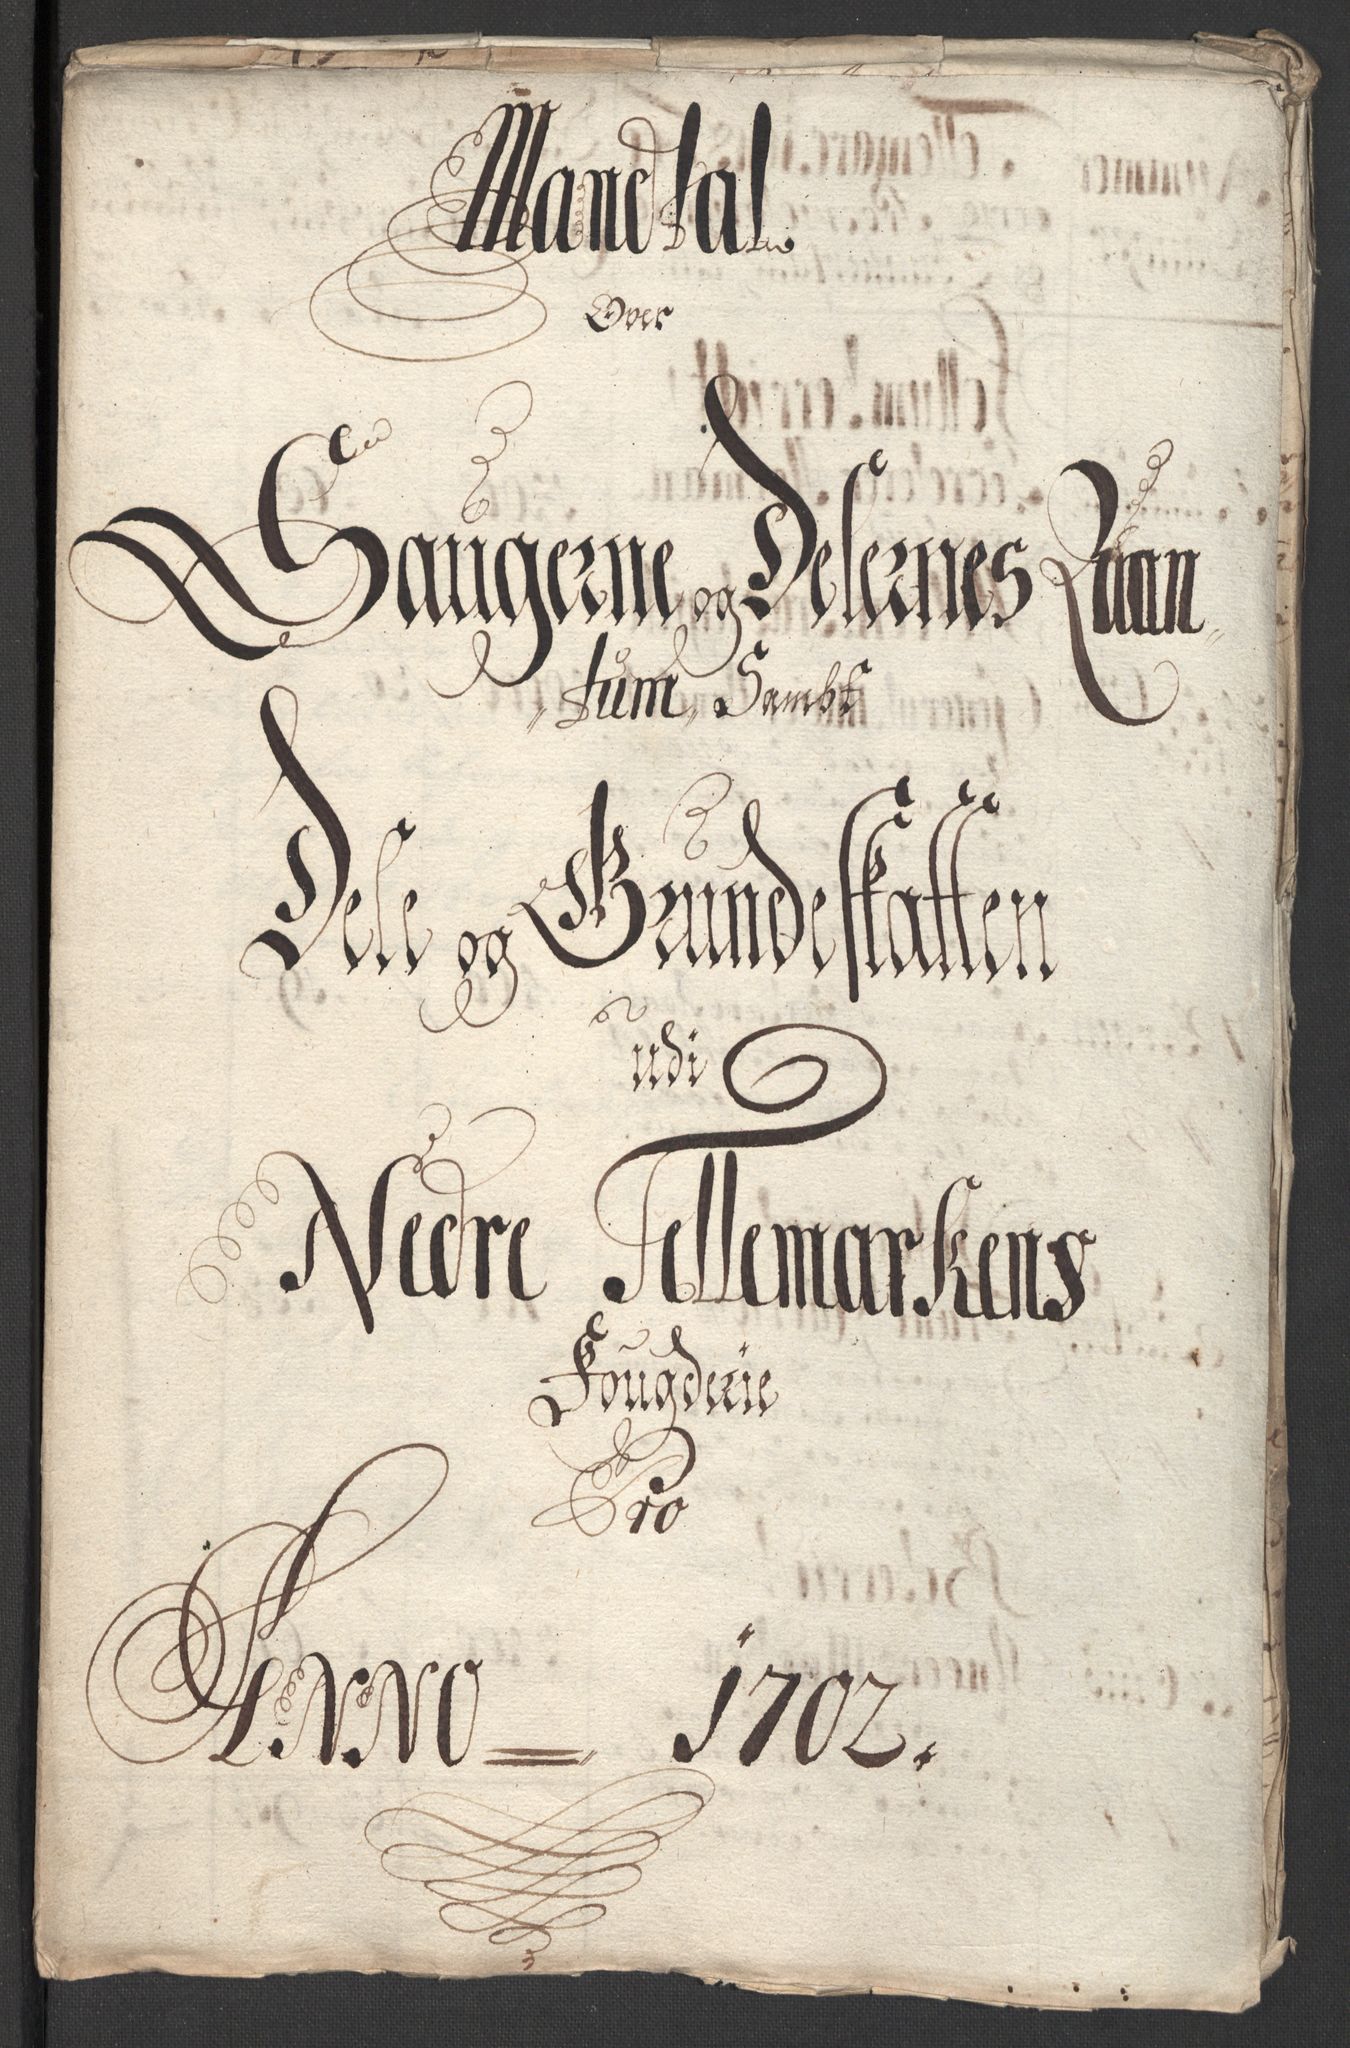 Mandtal
Over
Saugerne og Delernes Quan„
„tum„ Sambt
Dele og Grundeskatten
udi
Nedre Tellemarkens
Fougderie
Pro
ANNO 1702.